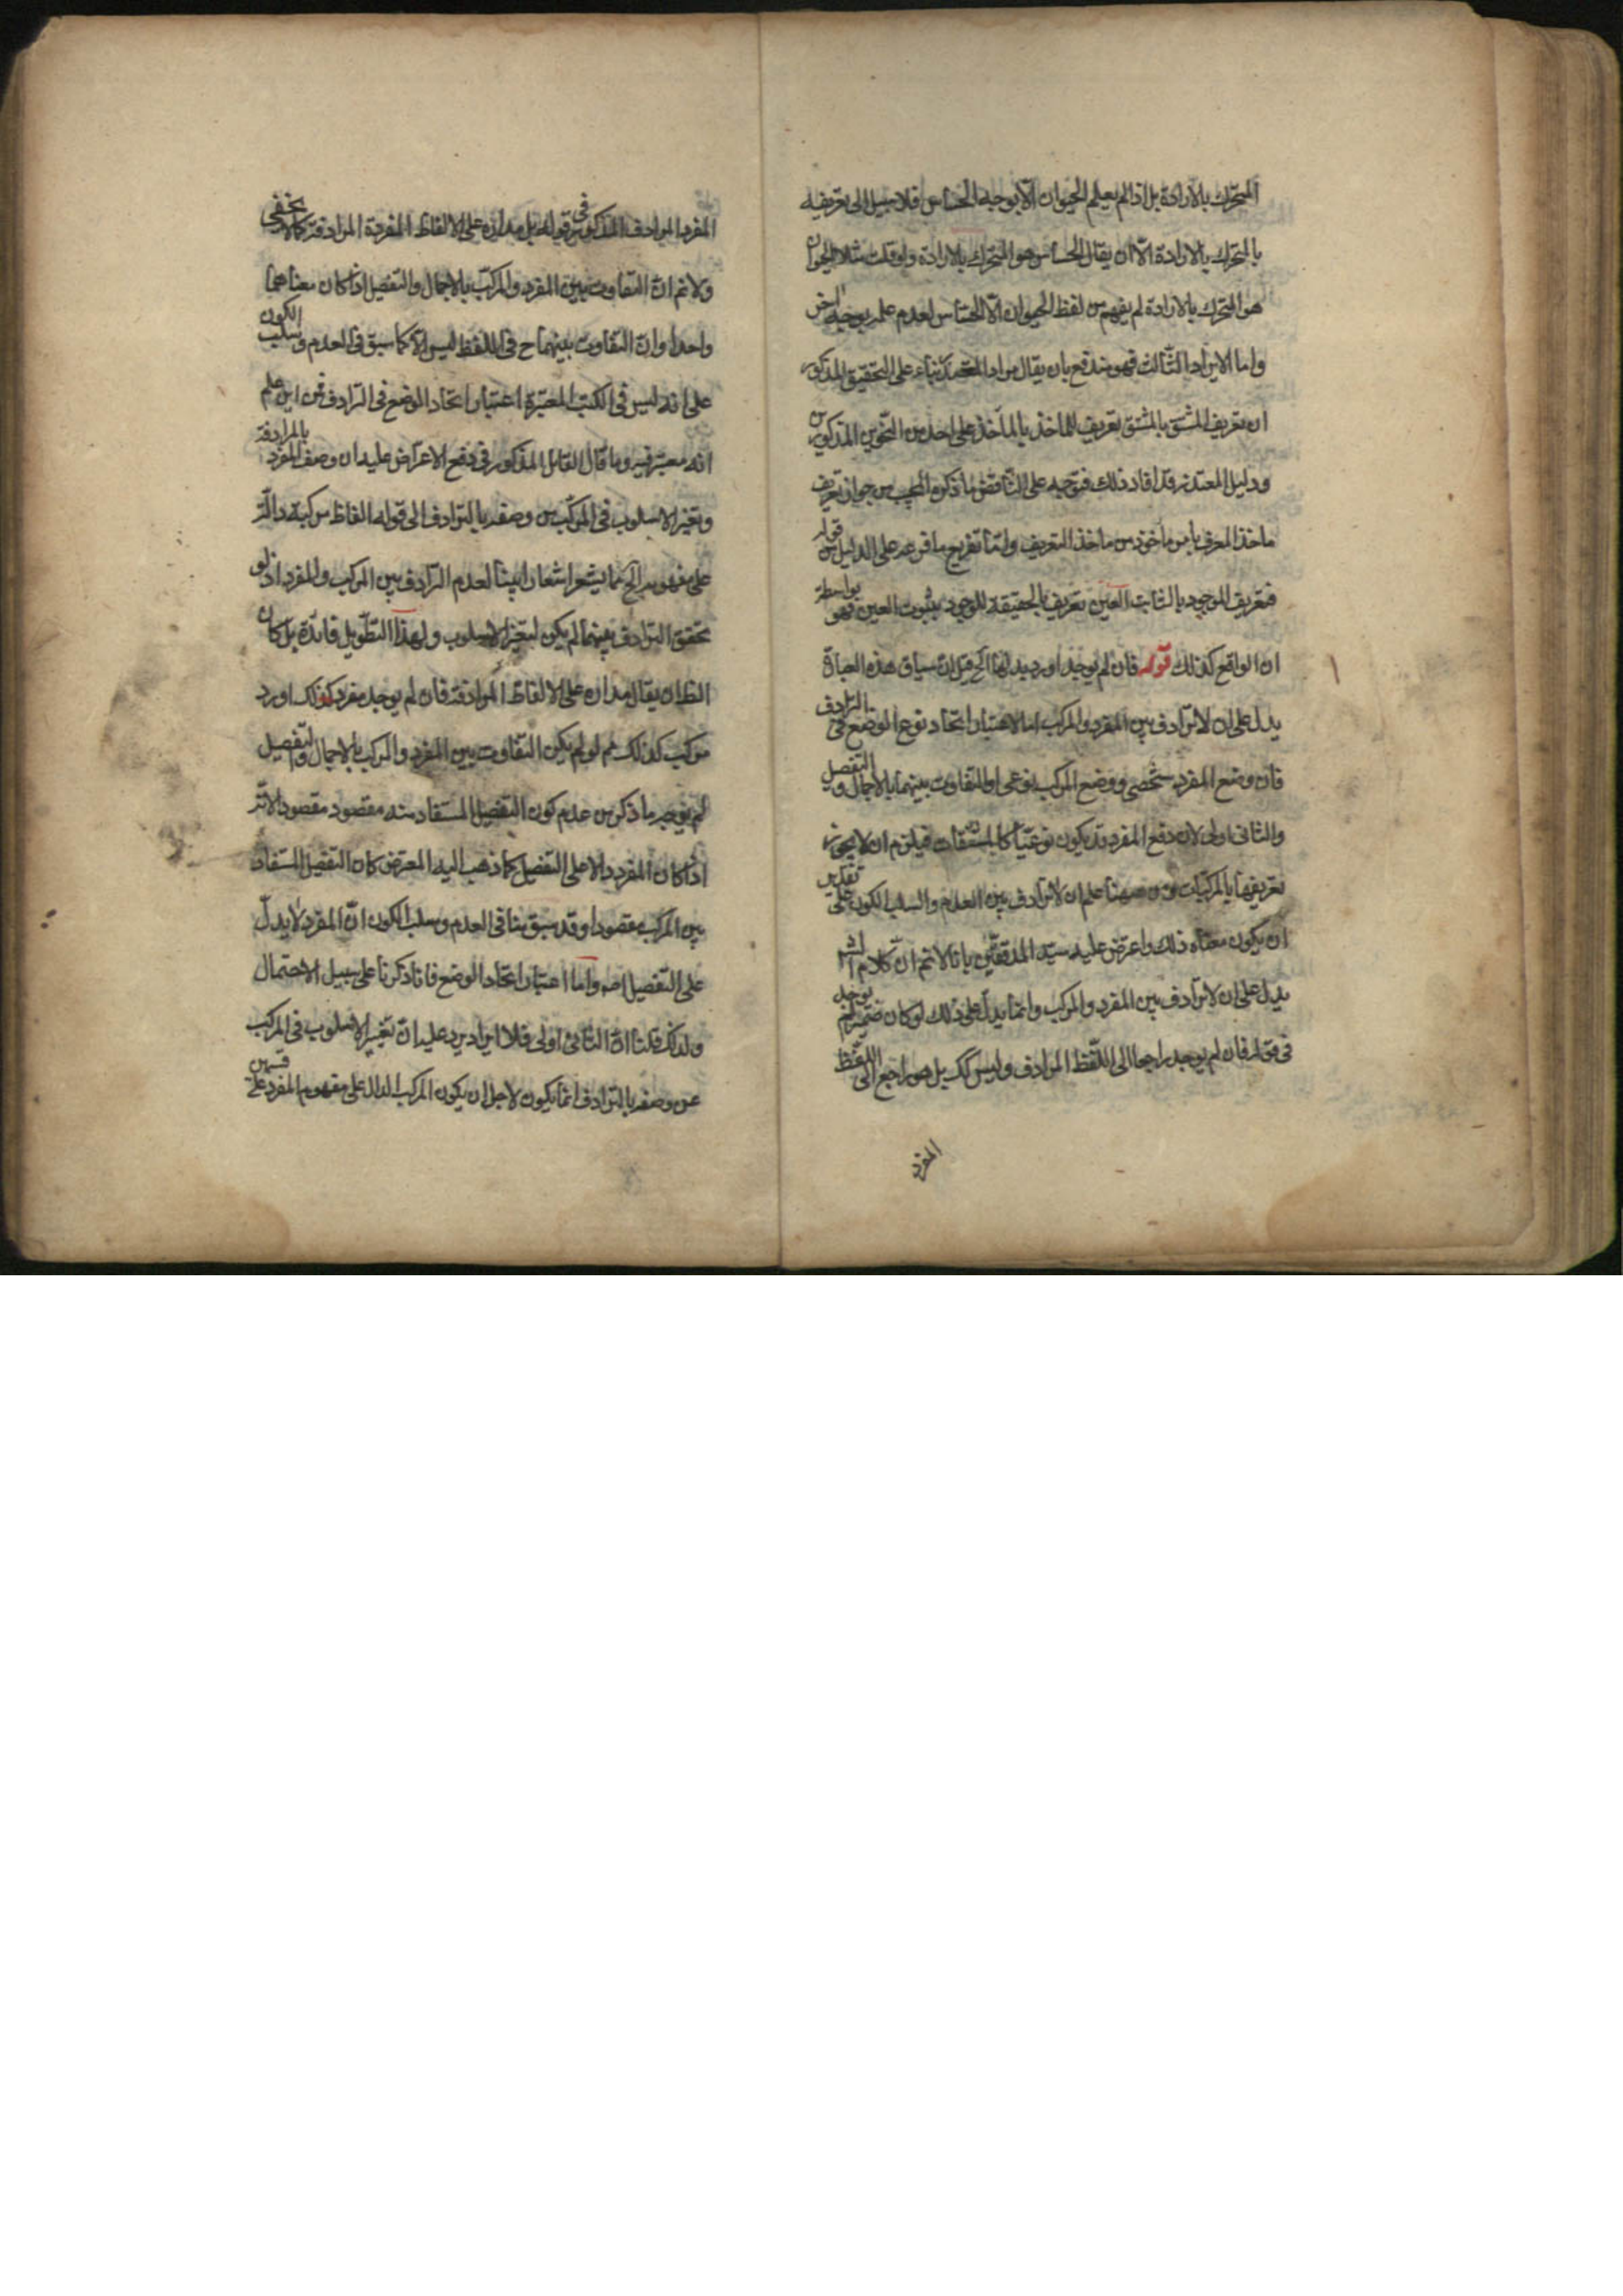 المتحرك بالارادة بل اذا لم يعلم الحيوان الا بوجه الحساس فلا سبيل الى تعريفه
بالمتحرك بالارادة الا ان يقال الحساس هو المتحرك بالارادة ولو قلت مثلا الحيوان
هو المتحرك بالارادة لم يفهم من لفظ الحيوان الا الحساس لعدم علمه بوجه اخر
واما الايراد الثالث فهو مندفع بان يقال مراد المعتمد بناء على التحقيق المذكور
ان تعريف المشتق بالمشتق تعريف للماخذ بالماخذ على احد من النحوين المذكورين
ودليل المعتذر قد افاد ذلك فتوجيه على التناقض ما ذكره المجيب من جواز تعريف
ماخذ المعرف بامر ماخوذ من ماخذ التعريف وانما تفريع ما فرعه على الدليل من قوله
فتعريف الموجود بالثابت العين تعريف بالحقيقة للوجود بثبوت العين فهو بواسطة
ان الواقع كذلك قوله فان لم يوجد اورد بدلها الخ قيل ان سياق هذه العبارة
يدل على ان لا ترادف بين المفرد والمركب اما لاعتبار اتحاد نوع الوضع في الترادف
فان وضع المفرد شخصي ووضع المركب نوعي او للتفاوت بينهما بالاجمال والتفصيل
والثاني اولى لان وضع المفرد قد يكون نوعيا كالمشتقات فيلزم ان لا يجوز
تعريفها بالمركبات ومن ههنا علم ان لا ترادف بين العدم والسلب الكون على تقدير
ان يكون معناه ذلك واعترض عليه سيد المدققين بانا لا نم ان كلام الش
يدل على ان لا ترادف بين المفرد والمركب وانما يدل على ذلك لو كان ضمير لم يوجد
في قوله فان لم يوجد راجعا الى اللفظ المرادف وليس كك بل هو راجع الى اللفظ
المفرد
المفرد المرادف المذكور في قوله بل مداره على الالفاظ المفردة المرادفة كما لا يخفى
ولا نم ان التفاوت بين المفرد والمركب بالاجمال والتفصيل اذا كان معناهما
واحدا وان التفاوت بينهما ح في اللفظ ليس الا كما سبق في العدم وسلب الكون
على انه ليس في الكتب المعتبرة اعتبار اتحاد الوضع في الترادف فمن اين علم
انه معتبر فيه وما قال القائل المذكور في دفع الاعتراض عليه ان وصف المفرد بالمرادفة
وتغير الاسلوب في المركب من وصفه بالترادف الى قوله الفاظ مركبة دالة
على مفهومه الخ مما يشعر اشعارا بينا لعدم الترادف بين المركب والمفرد اذ لو
تحقق الترادف بينهما لم يكن لتغير الاسلوب ولهذا التطويل فائدة بل كان
الظ ان يقال مداره على الالفاظ المرادفة فان لم يوجد مفرد كذلك اورد
مركب كذلك نعم لو لم يكن التفاوت بين المفرد والمركب بالاجمال والتفصيل
لم يتوجه ما ذكر من عدم كون التفصيل المستفاد منه مقصود مقصودا لانه
اذا كان المفرد دالا على التفصيل كما ذهب اليه المعترض كان التفصيل المستفاد
بين المركب مقصودا وقد سبق منا في العدم وسلب الكون ان المفرد لا يدل
على التفصيل اصه واما اعتبار اتحاد الوضع فانا ذكرنا على سبيل الاحتمال
ولذلك قلنا ان الثاني اولى فلا ايراد يرد عليه ان تغيير الاسلوب في المركب
عن وصفه بالترادف انما يكون لاجل ان يكون المركب الدال على مفهوم المفرد على قسمين